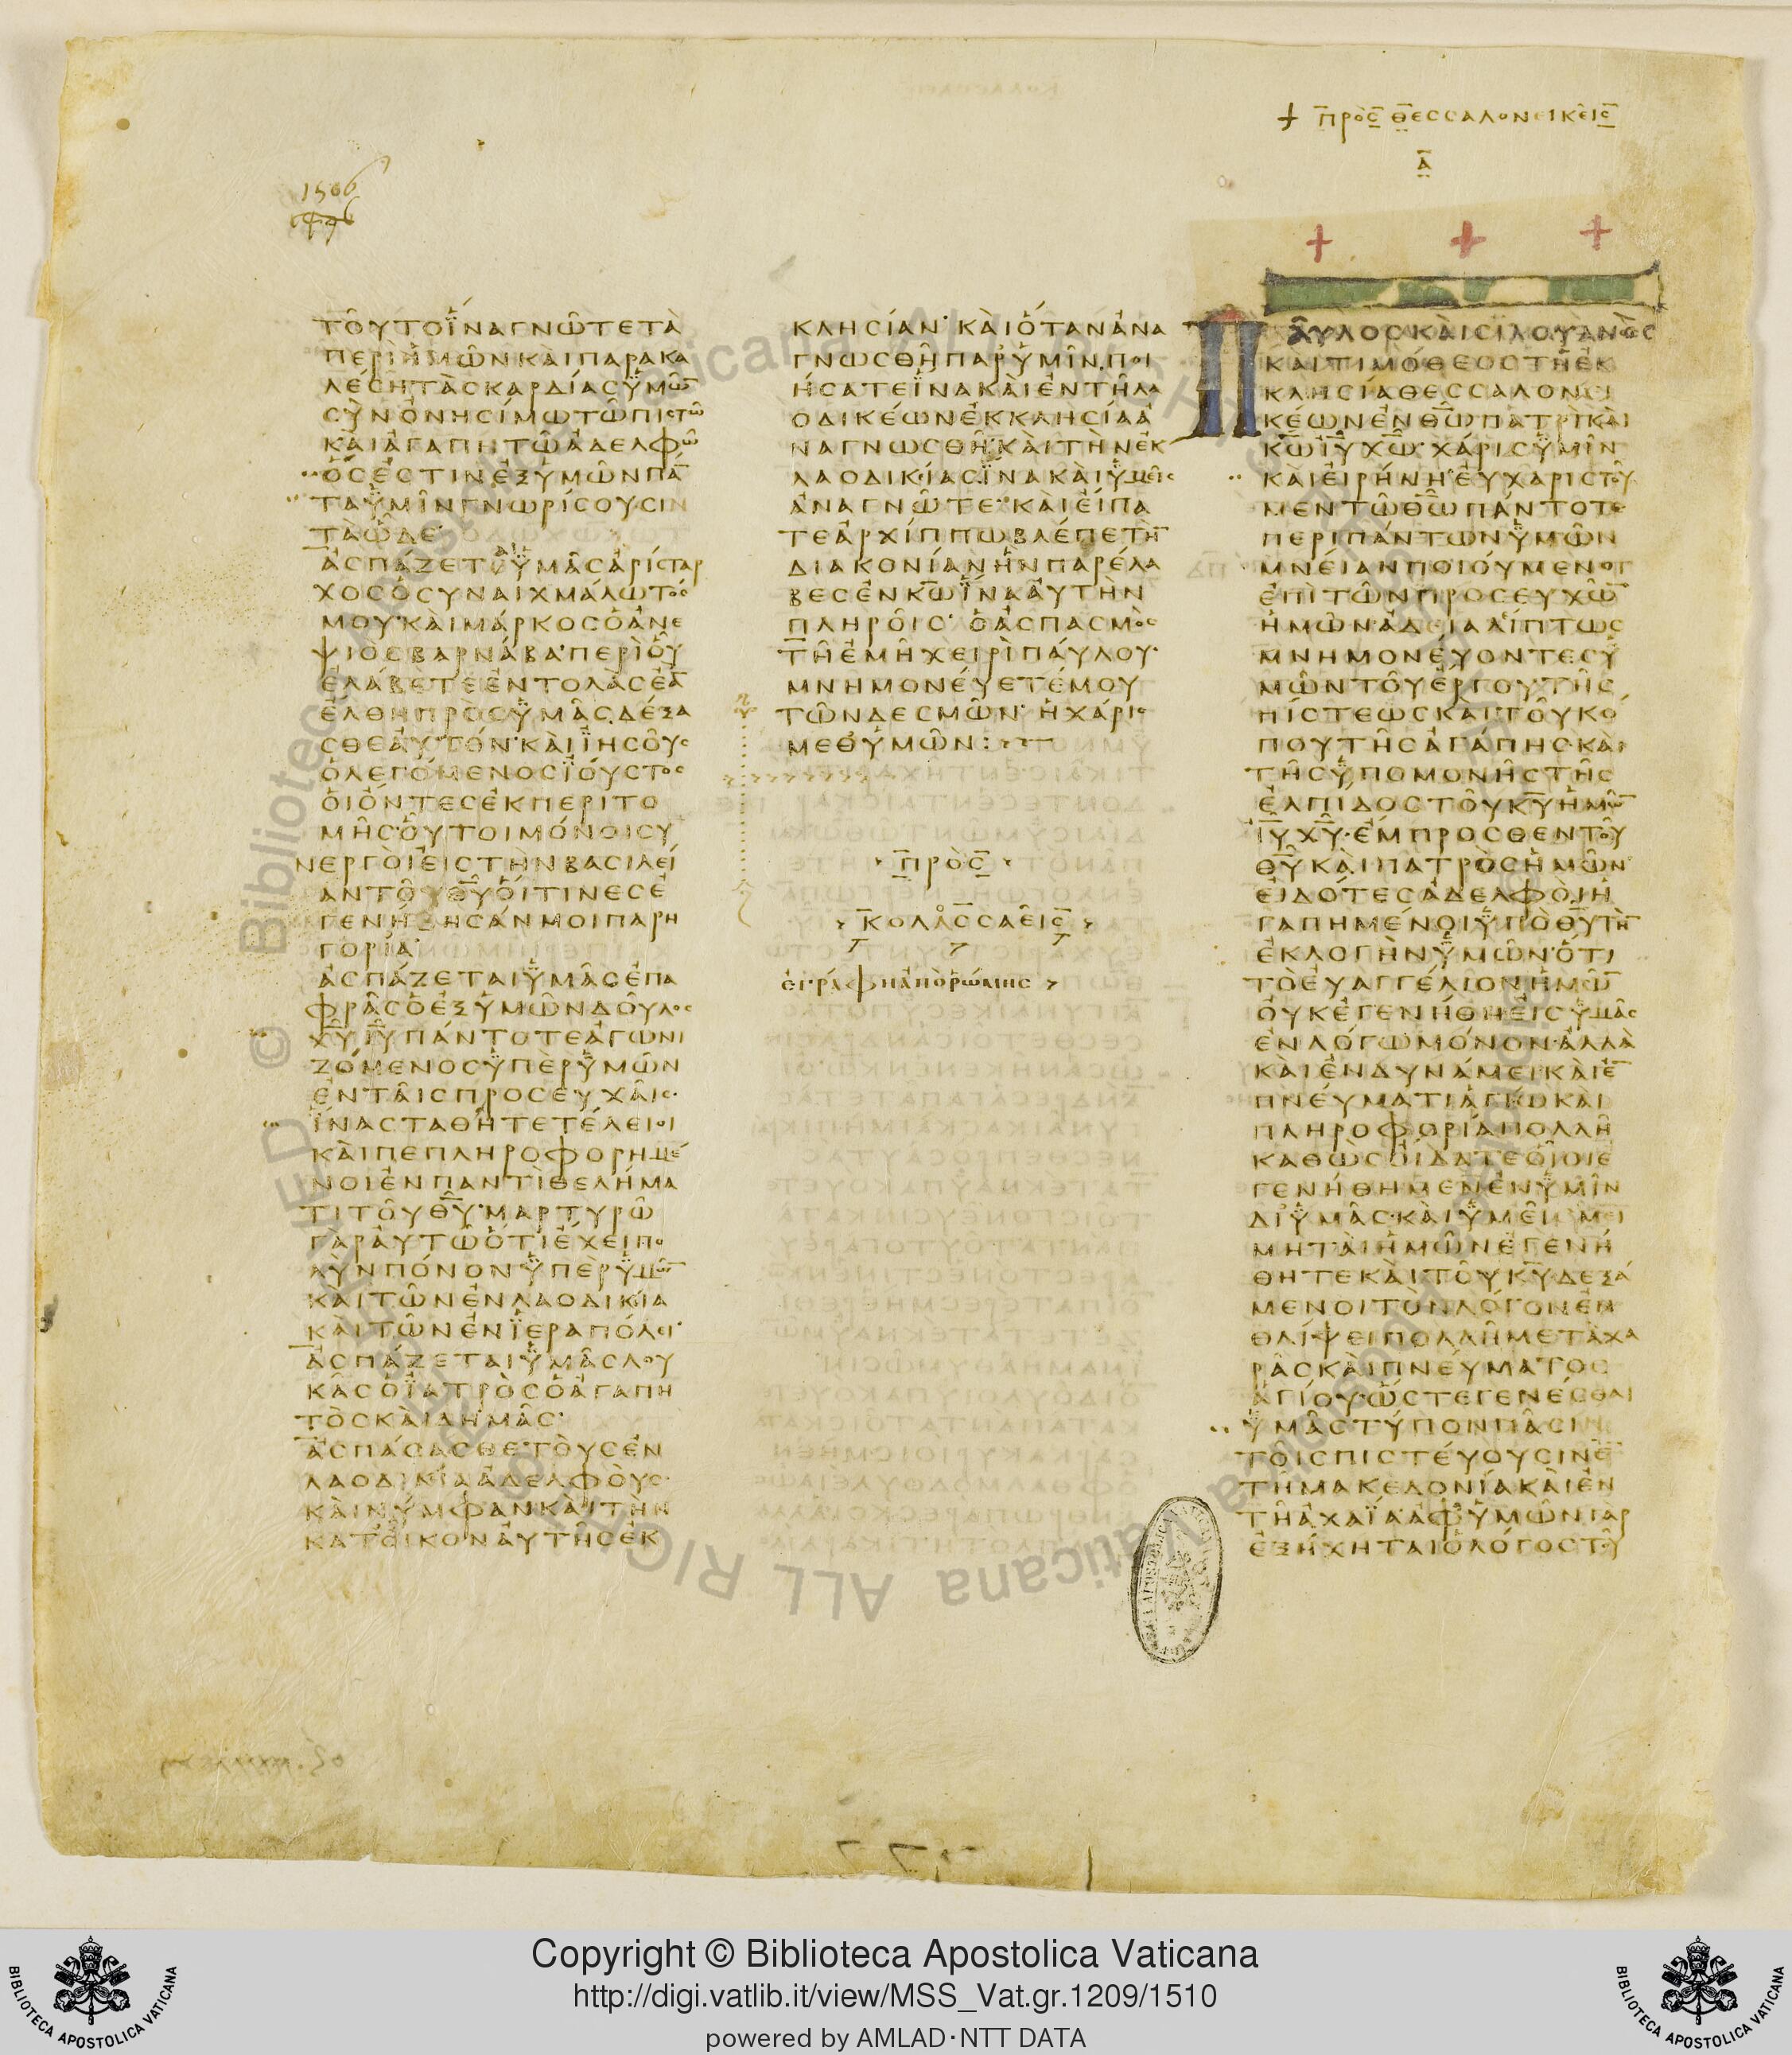 + προς θεσσαλονεικεις
α
1506
τοῦτο ἵνα γνῶτε τὰ
περὶ ἡμῶν καὶ παρακα
λέσῃ τὰς καρδίας ὑμῶ̅
σὺν ὀνησίμω τῶ πιστῶ
καὶ ἀγαπητῶ ἀδελφῶ
ὅς ἐστιν ἐξ ὑμῶν πά̅
τα ὑμῖν γνωρίσουσιν
τὰ ὧδε·
ἀσπάζεται ὑμᾶς ἀρίσταρ
χος ὁ συναιχμάλωτός
μου· καὶ μάρκος ὁ ἀνε
ψιὸς βαρνάβα· περὶ οὗ
ἐλάβετε ἐντολὰς ἐὰ̅
ἔλθη πρὸς ὑμᾶς δέξα
σθε αὐτόν· καὶ ἰησοῦς
ὁ λεγόμενος ἰοῦστος
οἱ ὄντες ἐκ περιτο
μῆς· οὗτοι μόνοι συ
νεργοὶ εἰς τὴν βασιλεί
αν τοῦ θ̅υ̅ οἵτινες ἐ
γενήθησάν μοι παρη
γορία·
ἀσπάζεται ὑμᾶς ἐπα
φρᾶς ὁ ἐξ ὑμῶν δοῦλος
χ̅υ̅ ι̅υ̅ πάντοτε ἀγωνι
ζόμενος ὑπὲρ ὑμῶν
ἐν ταῖς προσευχαῖς·
ἵνα σταθῆτε τέλειοι
καὶ πεπληροφορημέ
νοι ἐν παντὶ θελήμα
τι τοῦ θ̅υ̅· μαρτυρῶ
γὰρ αὐτῶ ὅτι ἔχει πο
λὺν πόνον ὑπὲρ ὑμῶ̅
καὶ τῶν ἐν λαοδικία
καὶ τῶν ἐν ἱεραπόλει·
ἀσπάζεται ὑμᾶς λου
κᾶς ὁ ἰατρὸς ὁ ἀγαπη
τὸς καὶ δημᾶς·
ἀσπάσασθε τοὺς ἐν
λαοδικία ἀδελφοὺς·
καὶ νύμφαν καὶ τὴν
κατ οἶκον αὐτῆς ἐκ
κλησίαν· καὶ ὅταν ἀνα
γνωσθῆ παρ ὑμῖν ποι
ήσατε ἵνα καὶ ἐν τῆ λα
οδικέων ἐκκλησία ἀ
ναγνωσθῆ· καὶ τὴν ἐκ
λαοδικίας ἵνα καὶ ὑμεῖς
ἀναγνῶτε· καὶ εἴπα
τε ἀρχίππω βλέπε τὴ̅
διακονίαν ἣν παρέλα
βες ἐν κ̅ω̅ ἵνα αὐτὴν
πληροῖς· ὁ ἀσπασμὸς
τῆ ἐμῆ χειρὶ παύλου·
μνημονεύετέ μου
τῶν δεσμῶν· ἡ χάρις
μεθ ὑμῶν:
προς
κολασσαεις
ἐγράφη ἀπὸ ῥώμης
παῦλος καὶ σιλουανὸς
καὶ τιμόθεος τῆ ἐκ
κλησία θεσσαλονει
κέων ἐν θ̅ω̅ πατρὶ καὶ
κ̅ω̅ ι̅υ̅ χ̅ω̅· χάρις ὑμῖν
καὶ εἰρήνη· εὐχαριστοῦ
μεν τῶ θ̅ω̅ πάντοτε
περὶ πάντων ὑμῶν
μνείαν ποιούμενοι
ἐπὶ τῶν προσευχῶ̅
ἡμῶν· ἀδιαλείπτως
μνημονεύοντες ὑ
μῶν τοῦ ἔργου τῆς
πίστεως καὶ τοῦ κό
που τῆς ἀγάπης· καὶ
τῆς ὑπομονῆς τῆς
ἐλπίδος τοῦ κ̅υ̅ ἡμῶ̅
ι̅υ̅ χ̅υ̅· ἔμπροσθεν τοῦ
θ̅υ̅ καὶ πατρὸς ἡμῶν·
εἰδότες ἀδελφοὶ ἠ
γαπημένοι ὑπὸ θ̅υ̅ τὴ̅
ἐκλογὴν ὑμῶν· ὅτι
τὸ εὐαγγέλιον ἡμῶ̅
οὐκ ἐγενήθη εἰς ὑμᾶς
ἐν λόγω μόνον· ἀλλὰ
καὶ ἐν δυνάμει· καὶ ἐ̅
πνεύματι ἁγίω καὶ
πληροφορία πολλῆ
καθὼς οἴδατε οἷοι ἐ
γενήθημεν ἐν ὑμῖν
δι ὑμᾶς· καὶ ὑμεῖς μει
μηταὶ ἡμῶν ἐγενή
θητε καὶ τοῦ κ̅υ̅ δεξά
μενοι τὸν λόγον ἐν
θλίψει πολλῆ μετὰ χα
ρᾶς καὶ πνεύματος
ἁγίου· ὥστε γενέσθαι
ὑμᾶς τύπον πᾶσιν
τοῖς πιστεύουσιν ἐ̅
τῆ μακεδονία καὶ ἐν
τῆ ἀχαΐα· ἀφ ὑμῶν γὰρ
ἐξήχηται ὁ λόγος τοῦ
Copyright © Biblioteca Apostolica Vaticana
http://digi.vatlib.it/view/MSS_Vat.gr.1209/1510
powered by AMLAD·NTT DATA
BIBLIOTECA APOSTOLICA VATICANA
BIBLIOTECA APOSTOLICA VATICANA